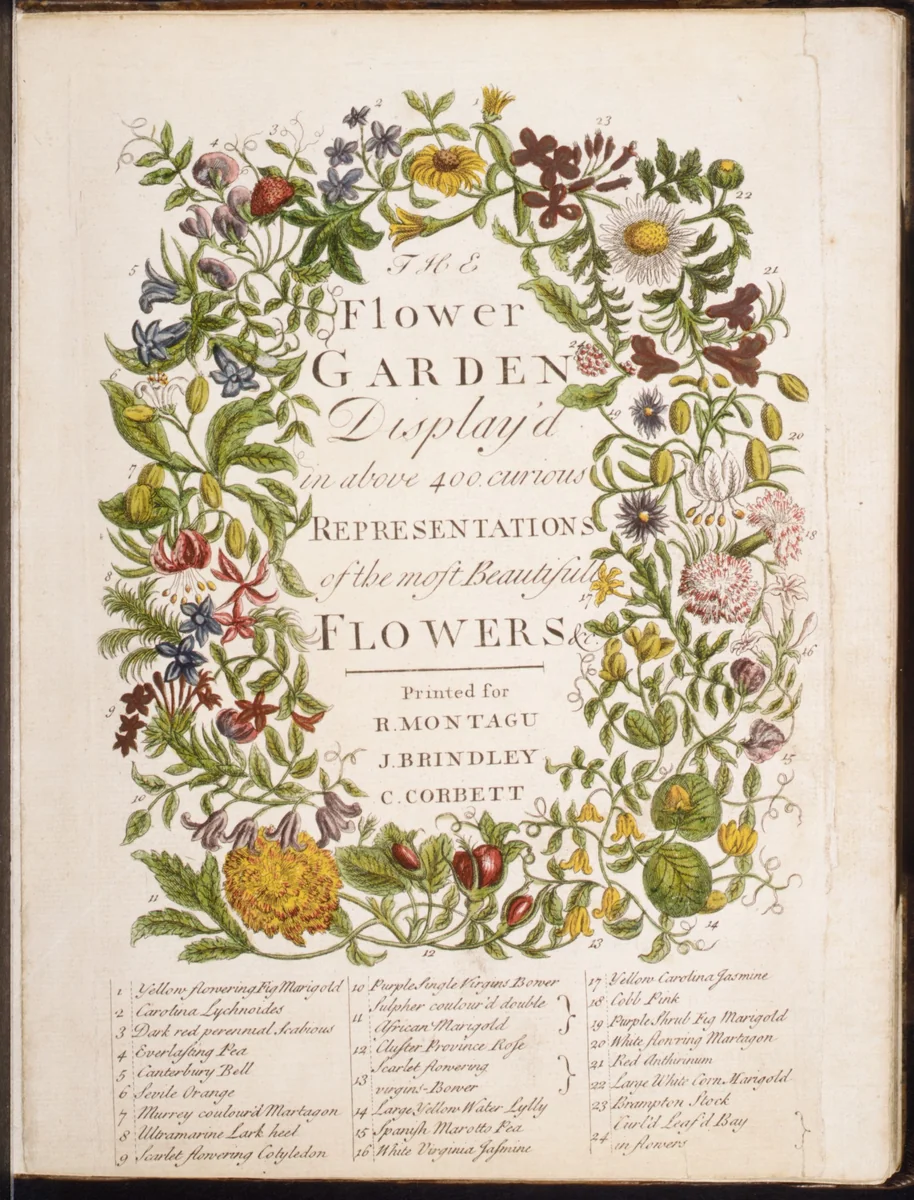 THE
Flower
GARDEN
Display'd
in above 400 curious
REPRESENTATIONS
of the moſt Beautifull
FLOWERS &c.
Printed for
R. MONTAGU
J. BRINDLEY
C. CORBETT
1
2
3
4
5
6
7
8
9
10
11
12
13
14
15
16
17
18
19
20
21
22
23
24
1 Yellow flowering Fig Marigold
2 Carolina Lychnoides
3 Dark red perennial Scabious
4 Everlaſting Pea
5 Canterbury Bell
6 Sevile Orange
7 Murrey coulour'd Martagon
8 Ultramarine Lark heel
9 Scarlet flowering Cotyledon
10 Purple Single Virgins Bower
11 Sulpher coulour'd double
African Marigold
12 Cluſter Province Roſe
13 Scarlet flowering
virgins-Bower
14 Large Yellow Water Lylly
15 Spaniſh Marotto Pea
16 White Virginia Jaſmine
17 Yellow Carolina Jasmine
18 Cobb Pink
19 Purple Shrub Fig Marigold
20 White flowring Martagon
21 Red Anthirinum
22 Large White Corn Marigold
23 Brampton Stock
24 Curl'd Leaf'd Bay
in flowers